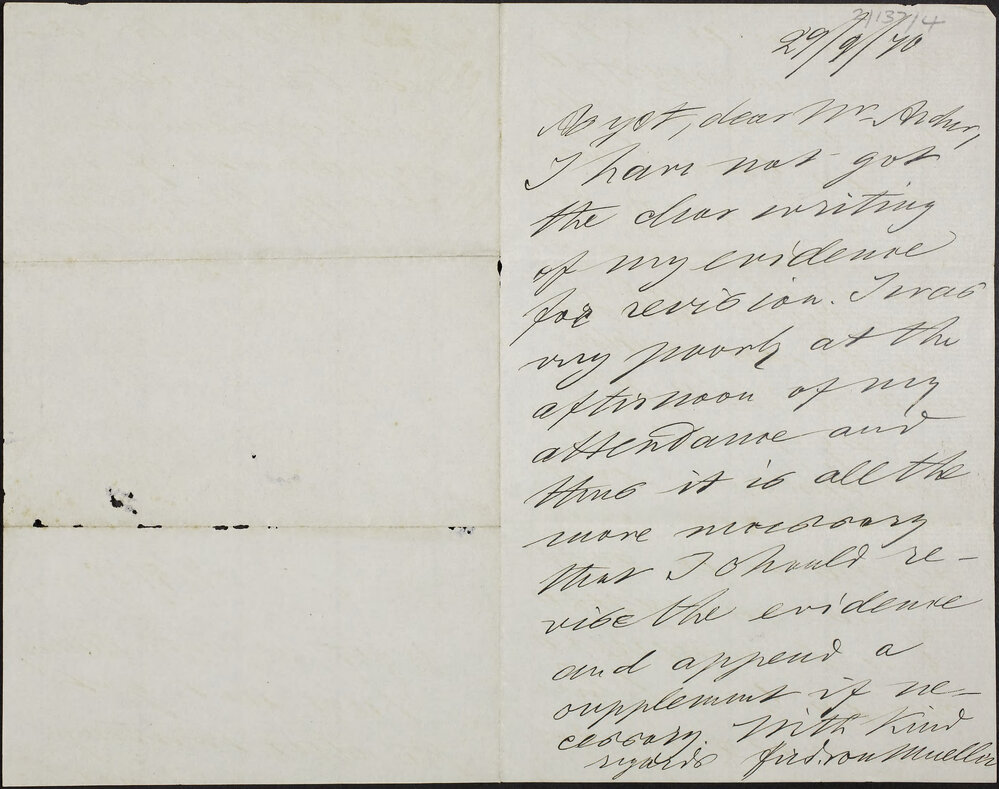 2/1371/4
29/9/70
As yet, dear Mr Archer,
I have not got
the clear writing
of my evidence
for revision. I was
very poorly at the
afternoon of my
attendance and
thus it is all the
more necessary
that I should re-
vise the evidence
and append a
supplement if ne-
cessary. With kind
regards Ferd. von Mueller